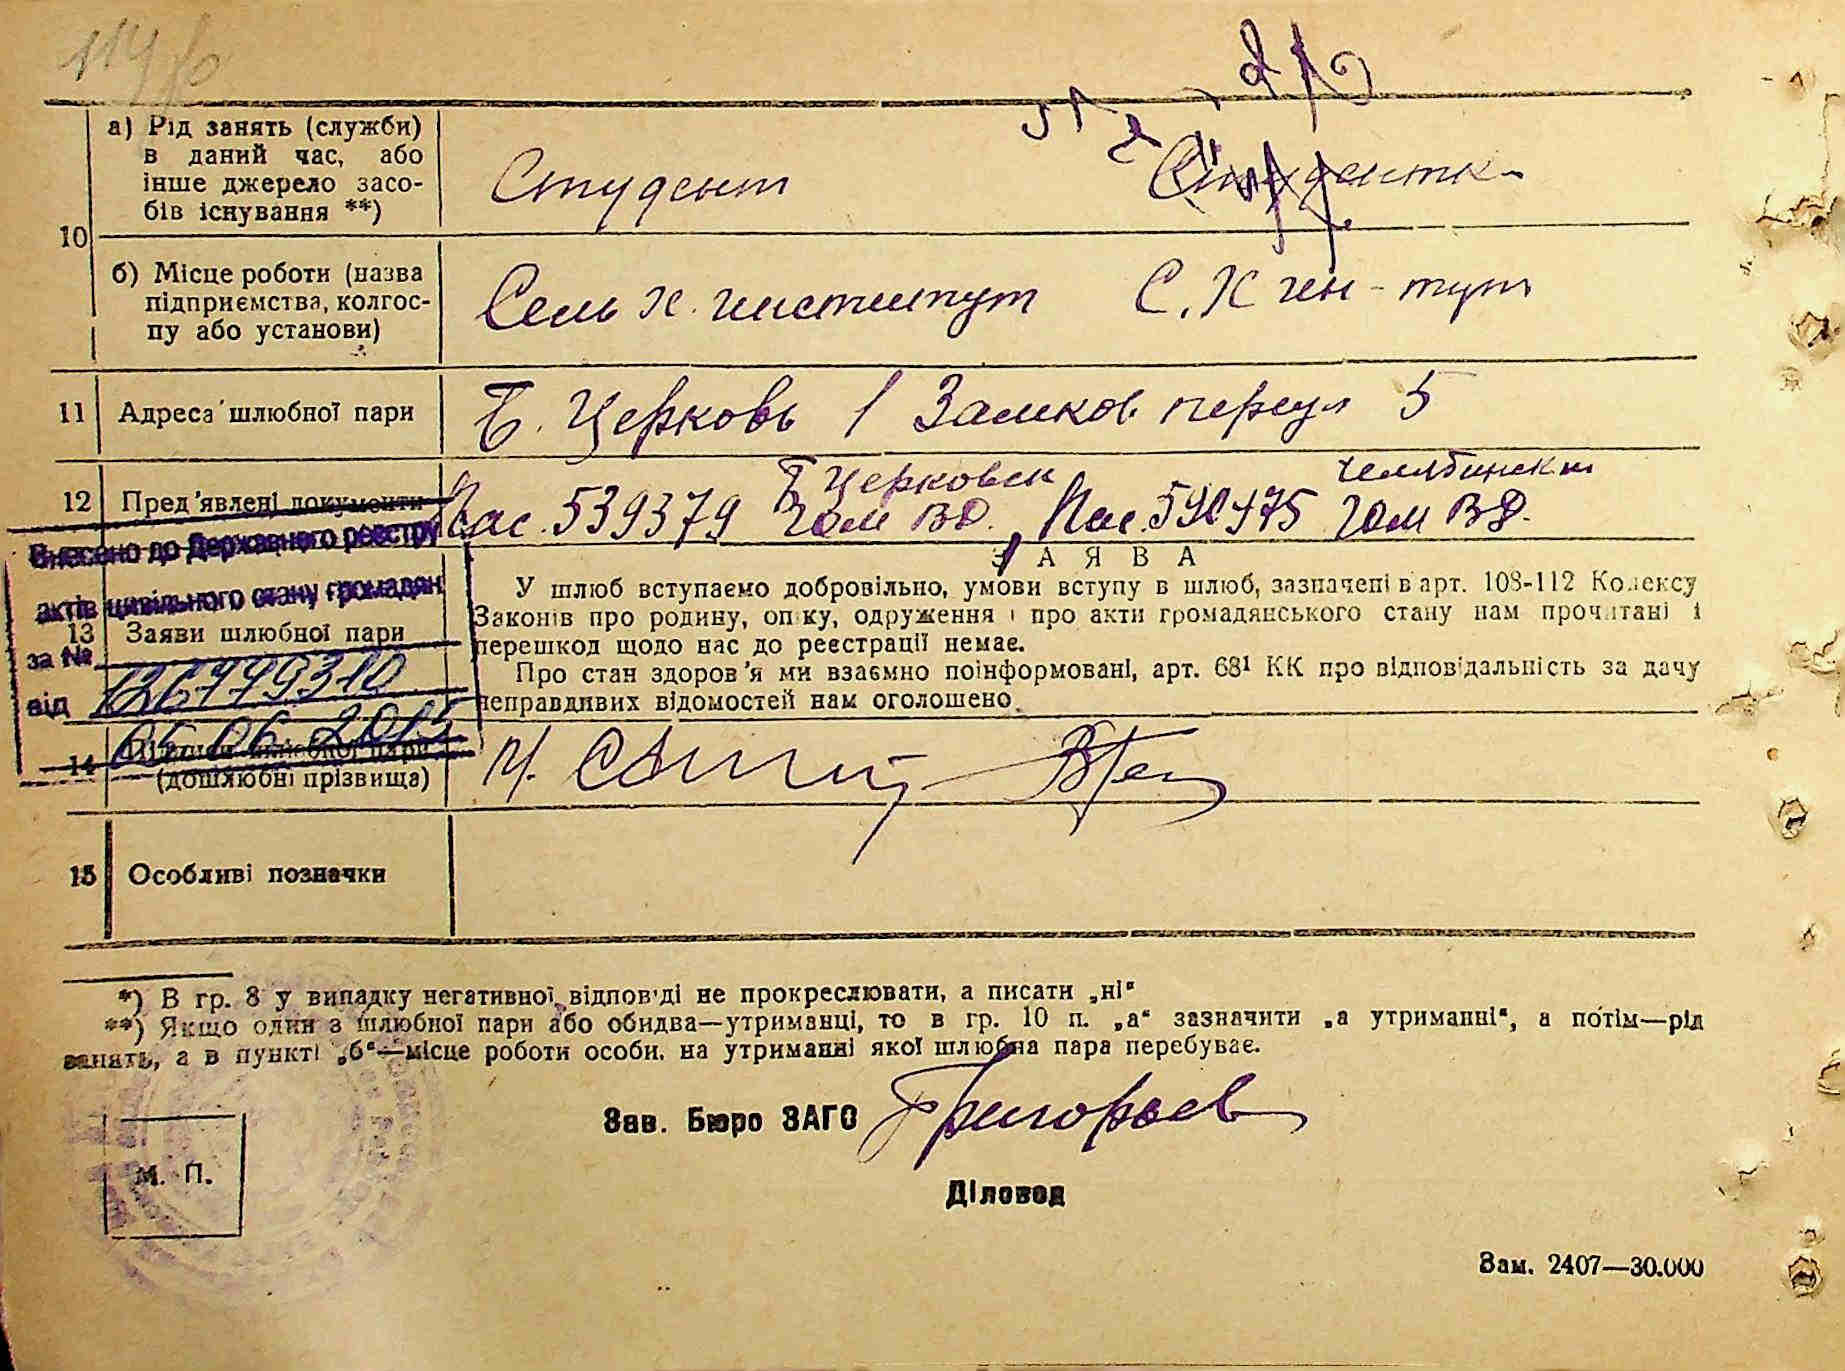 а) Рід занять (служби)
в даний час, або
інше джерело засо-
бів існування **)
Студент
Студентка
10
б) Місце роботи (назва
підприємства, колгос-
пу або установи)
Сель х. институт
С. Х ин-тут
11 Адреса шлюбної пари
Б. Церковь 1 Замков. переул 5
12 Пред'явлені документи
Б Церковск
Челябинск
Пас. 539379
Гом ВД.
Гом ВД.
Внесено до Державного реєстру
актів цивільного стану громадян
за № 126779310
від 05.06.2015
ЗАЯВА
13 Заяви шлюбної пари
У шлюб вступаємо добровільно, умови вступу в шлюб, зазначені в арт. 108-112 Кодексу
Законів про родину, опіку, одруження і про акти громадянського стану нам прочитані і
перешкод щодо нас до реєстрації немає.
Про стан здоров'я ми взаємно поінформовані, арт. 68¹ КК про відповідальність за дачу
неправдивих відомостей нам оголошено.
14 Підписи шлюбної пари
(дошлюбні прізвища)
15 Особливі позначки
*) В гр. 8 у випадку негативної відповіді не прокреслювати, а писати „ні"
**) Якщо один з шлюбної пари або обидва—утриманці, то в гр. 10 п. „а" зазначити „а утриманні", а потім—рід
занять, а в пункті „б"—місце роботи особи, на утриманні якої шлюбна пара перебуває.
Зав. Бюро ЗАГС Григорьев
Діловод
М. П.
Зам. 2407—30.000